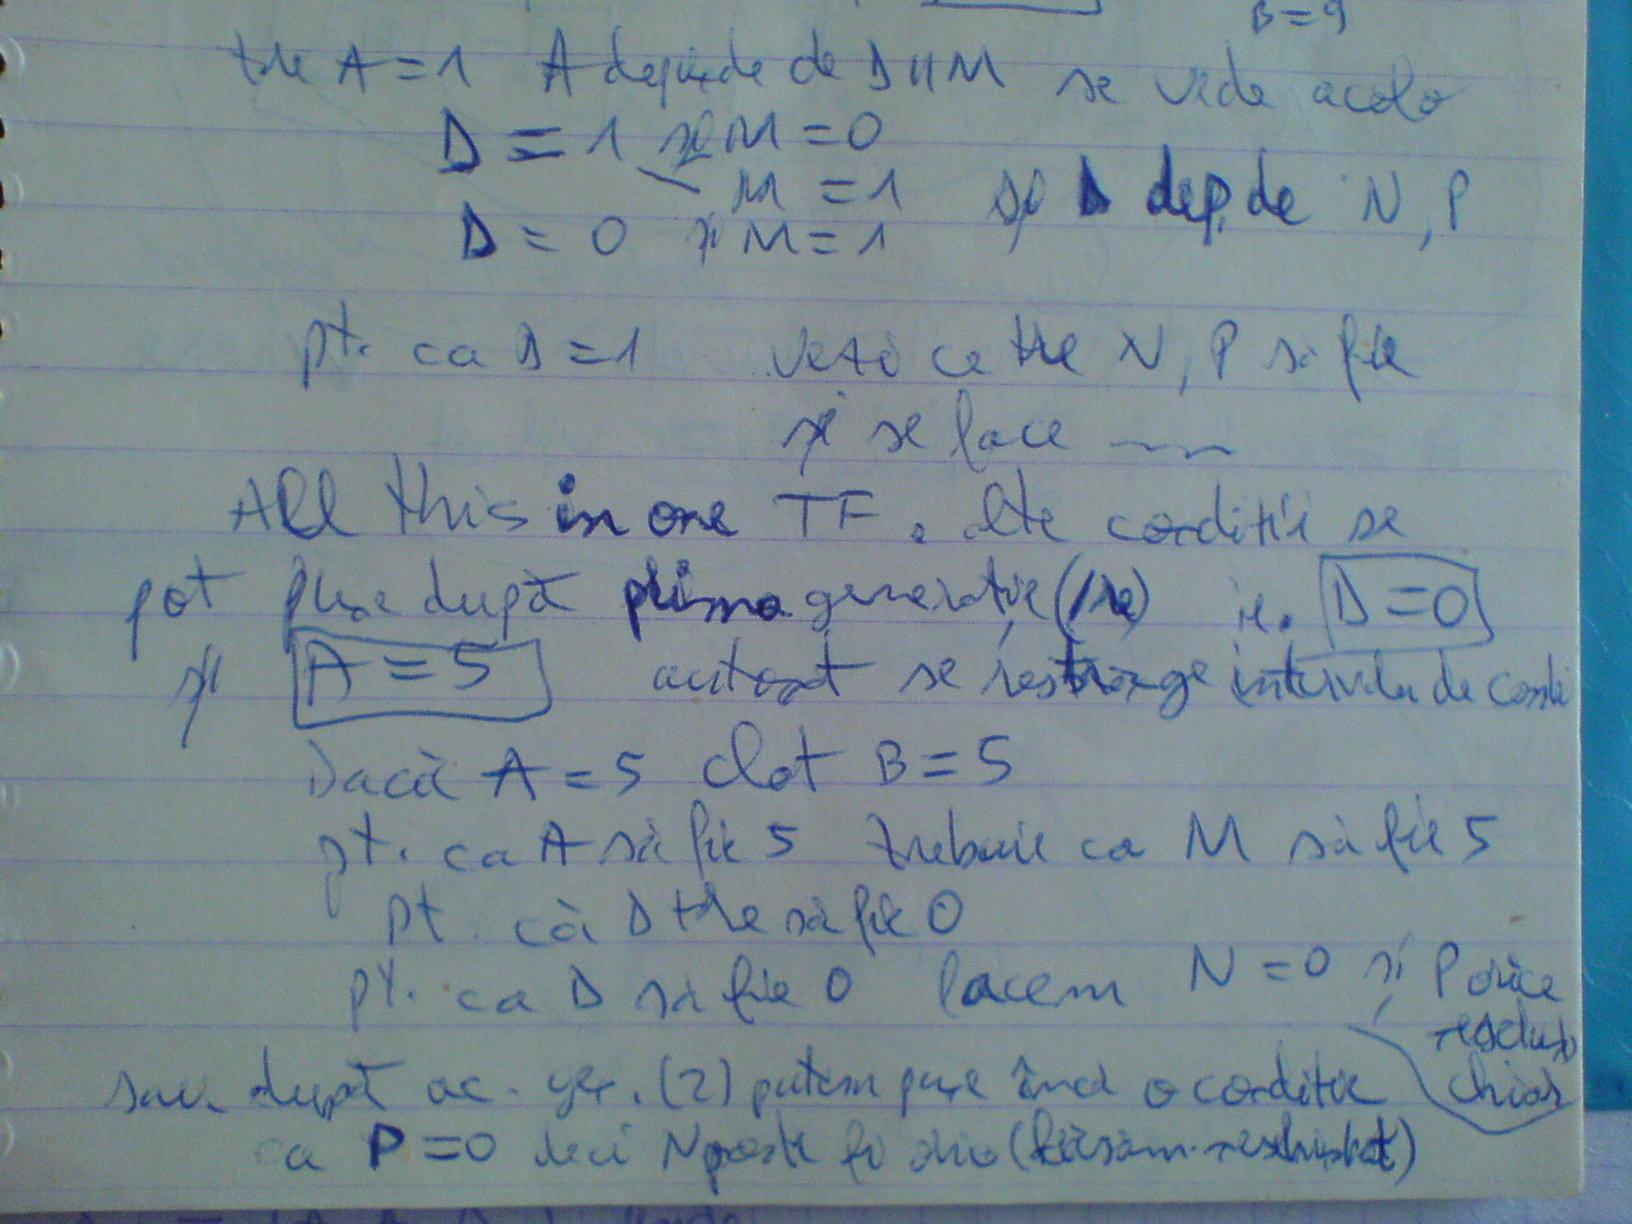 B=9
tre A=1 A depinde de D și M se vede acolo
D = 1 și M = 0
M = 1 și D dep. de N, P
D = 0 și M = 1
pt. ca D = 1 vezi ce tre N, P să fie
și se face
All this in one TF. alte condiții se
pot pune după prima generație ie. D = 0
și A = 5 automat se restrânge
Dacă A = 5 clot B = 5
pt. ca A să fie 5 trebuie ca M să fie 5
pt. că D tre să fie 0
pt. ca D să fie 0 facem N = 0 și P orice
chiar
sau după ac. gen. (2) putem pune încă o condiție
ca P = 0 deci N poate fi